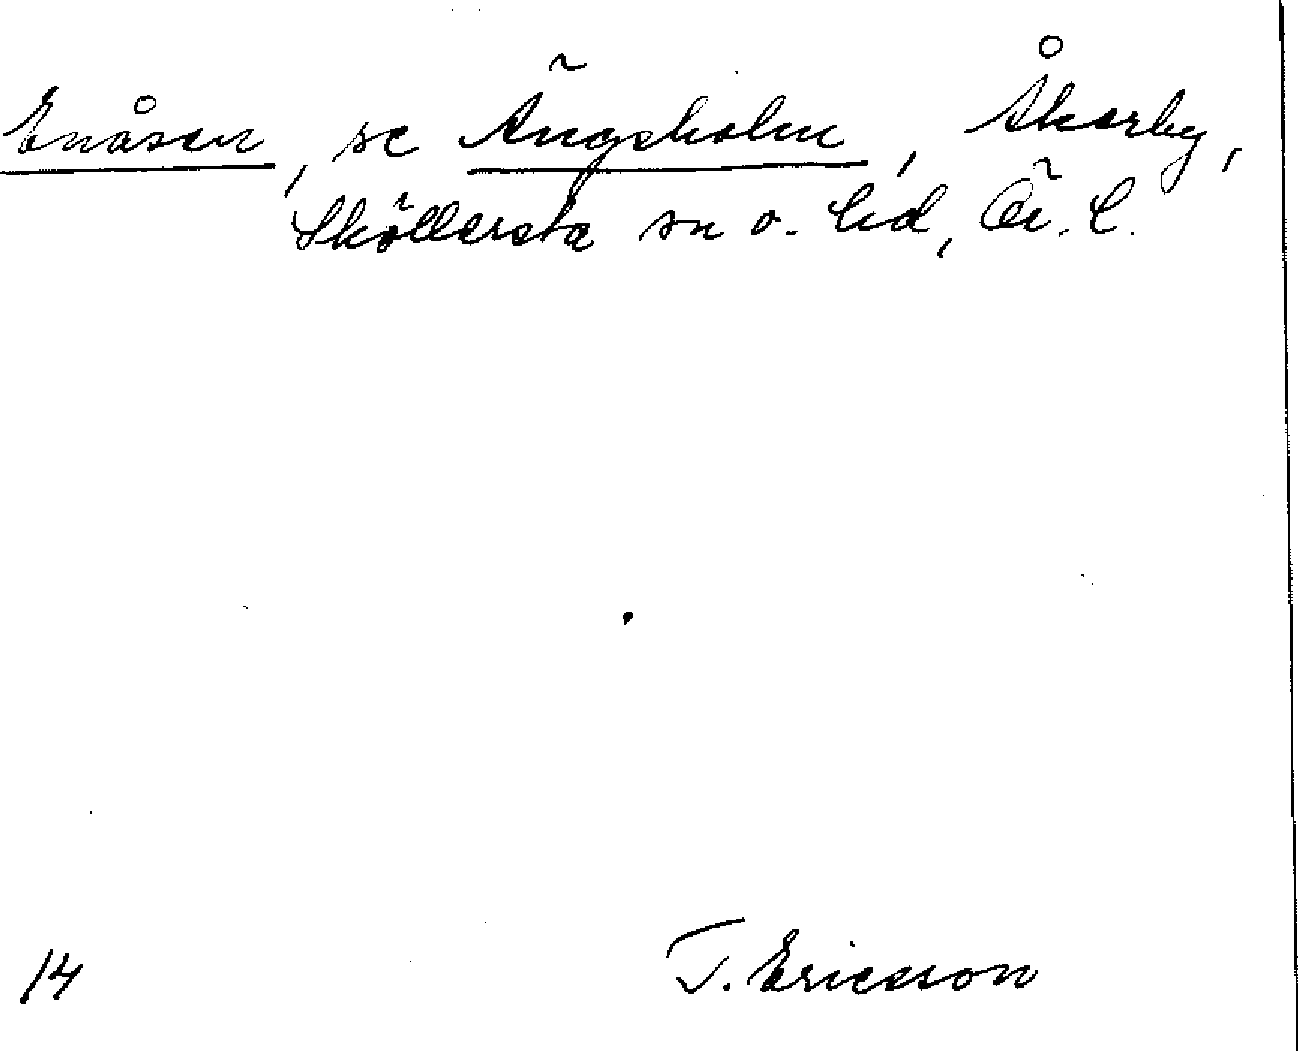 Enåsen, se Ängsholm, Åkerby,
Sköllersta sn o. hd, Ö. l.
14
T. Ericsson